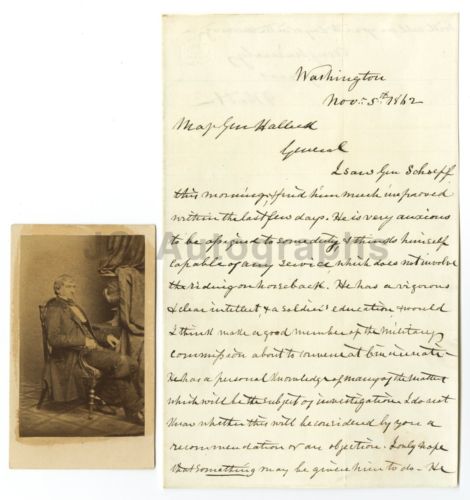 Washington
Nov: 5th 1862
Maj Gen Halleck
General
I saw Gen Schoepf
this morning & find him much improved
within the last few days. He is very anxious
to be assigned to some duty & thinks himself
capable of any service which does not involve
the riding on horseback. He has a vigorous
& clear intellect, & a soldiers' education & would
I think make a good member of the Military
Commission about to convene at Cincinnati -
He has a personal knowledge of many of the matters
which will be the subject of investigation. I do not
know whether this will be considered by you a
recommendation or an objection. I only hope
that something may be given him to do - He
JG Autographs